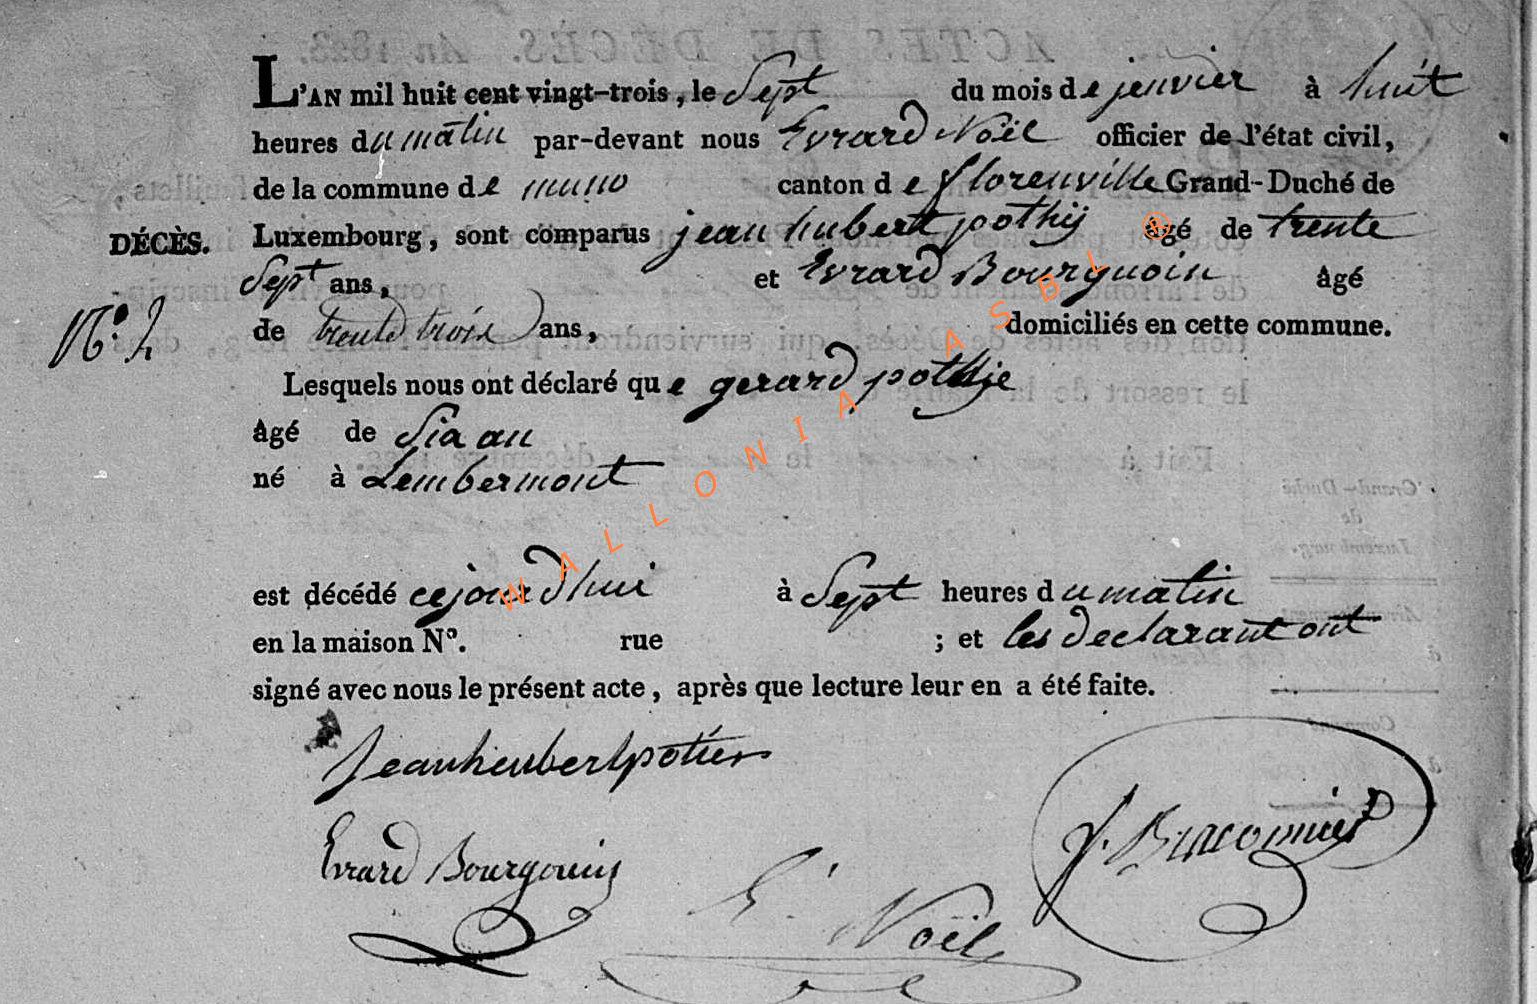 L'AN mil huit cent vingt-trois, le Sept du mois de jenvier à huit
heures du matin par-devant nous Evrard Noël officier de l'état civil,
de la commune de muno canton de florenville Grand-Duché de
DÉCÈS. Luxembourg, sont comparus jean hubert pothij âgé de trente
Sept ans, et Evrard Bourguoin âgé
N°. 2 de trente trois ans, domiciliés en cette commune.
Lesquels nous ont déclaré que gerard pothije
âgé de Sia an
né à Lembermont
est décédé cejourd'hui à Sept heures du matin
en la maison N°. rue ; et les declarant ont
signé avec nous le présent acte, après que lecture leur en a été faite.
Jeanheubertpotier
Evrard Bourgouin
E. Noël
WALLONIA ASBL ®